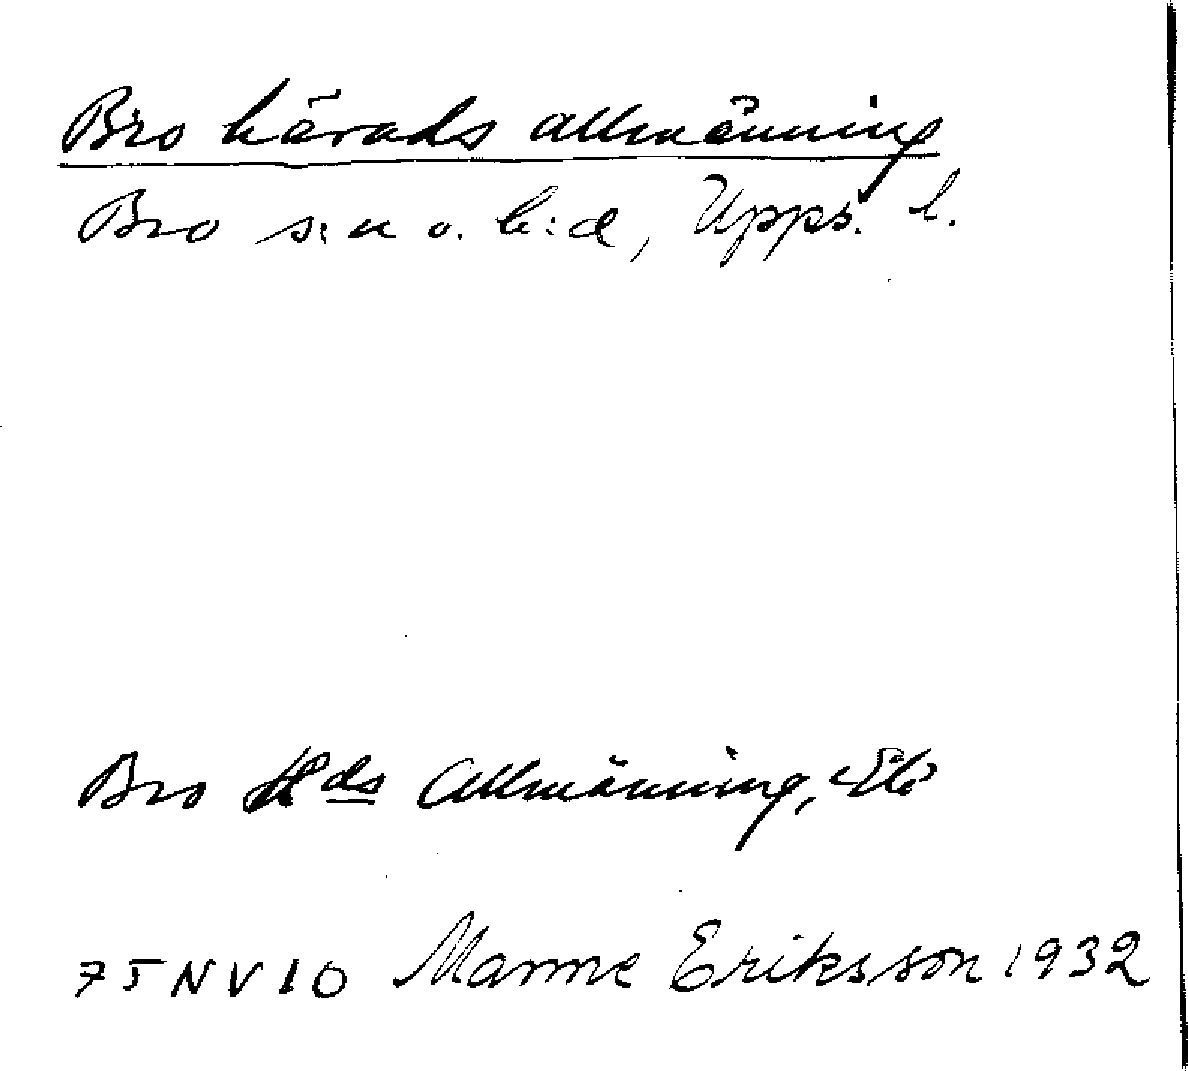 Bro härads allmänning
Bro s:n o. h:d, Upps. l.
Bro Hds Allmänning, Eb
75 NV 10 Manne Eriksson 1932